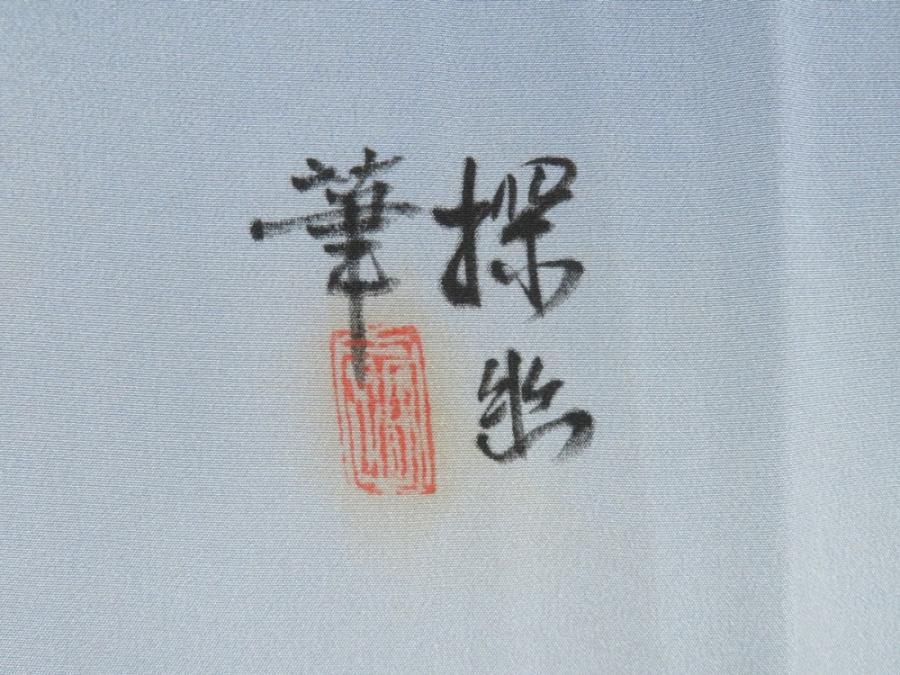 探幽
筆